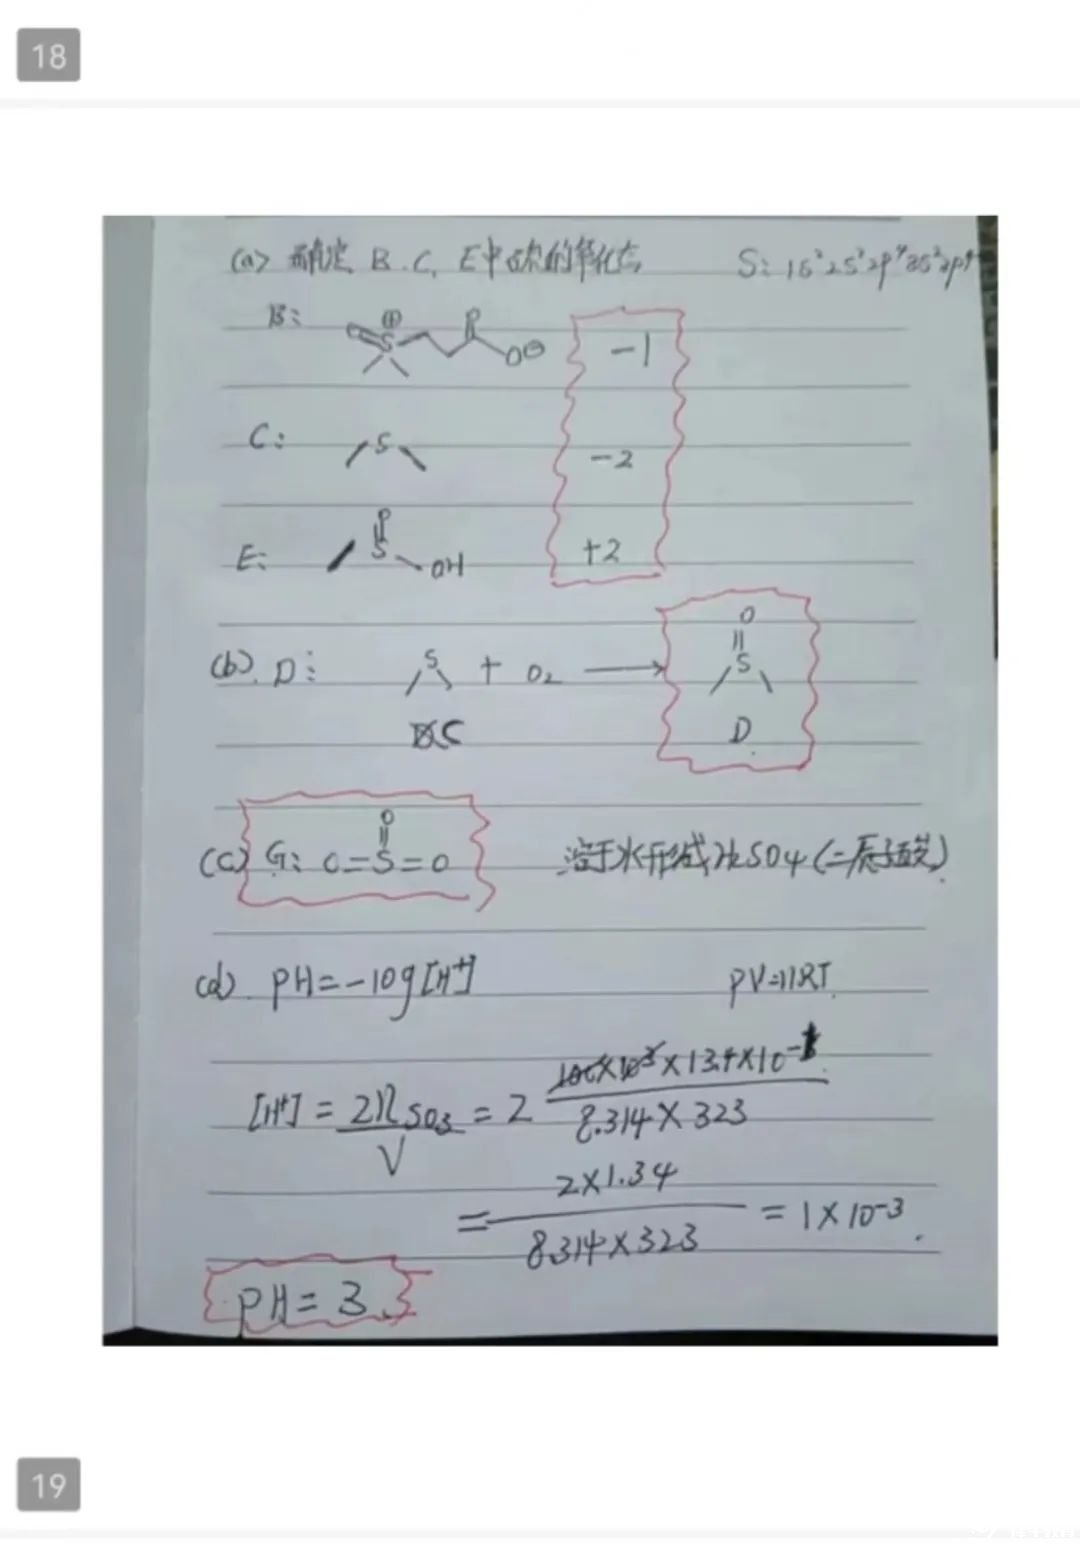 18
(a) 确定 B.C. E中硫的氧化态 S: 1s²2s²2p⁴3s²3p⁴
B: S⊕ O⊖ -1
C: S -2
E: S OH +2
(b). D: S + O₂ → O S
C D.
(c) G: O=S=O O 溶于水形成H₂SO₄(二质子酸).
(d). PH=-log[H⁺] PV=nRT.
[H⁺] = 2n SO₃ / V = 2 100×10³×13.4×10⁻ / 8.314×323
= 2×1.34 / 8.314×323 = 1×10⁻³.
PH=3.
19